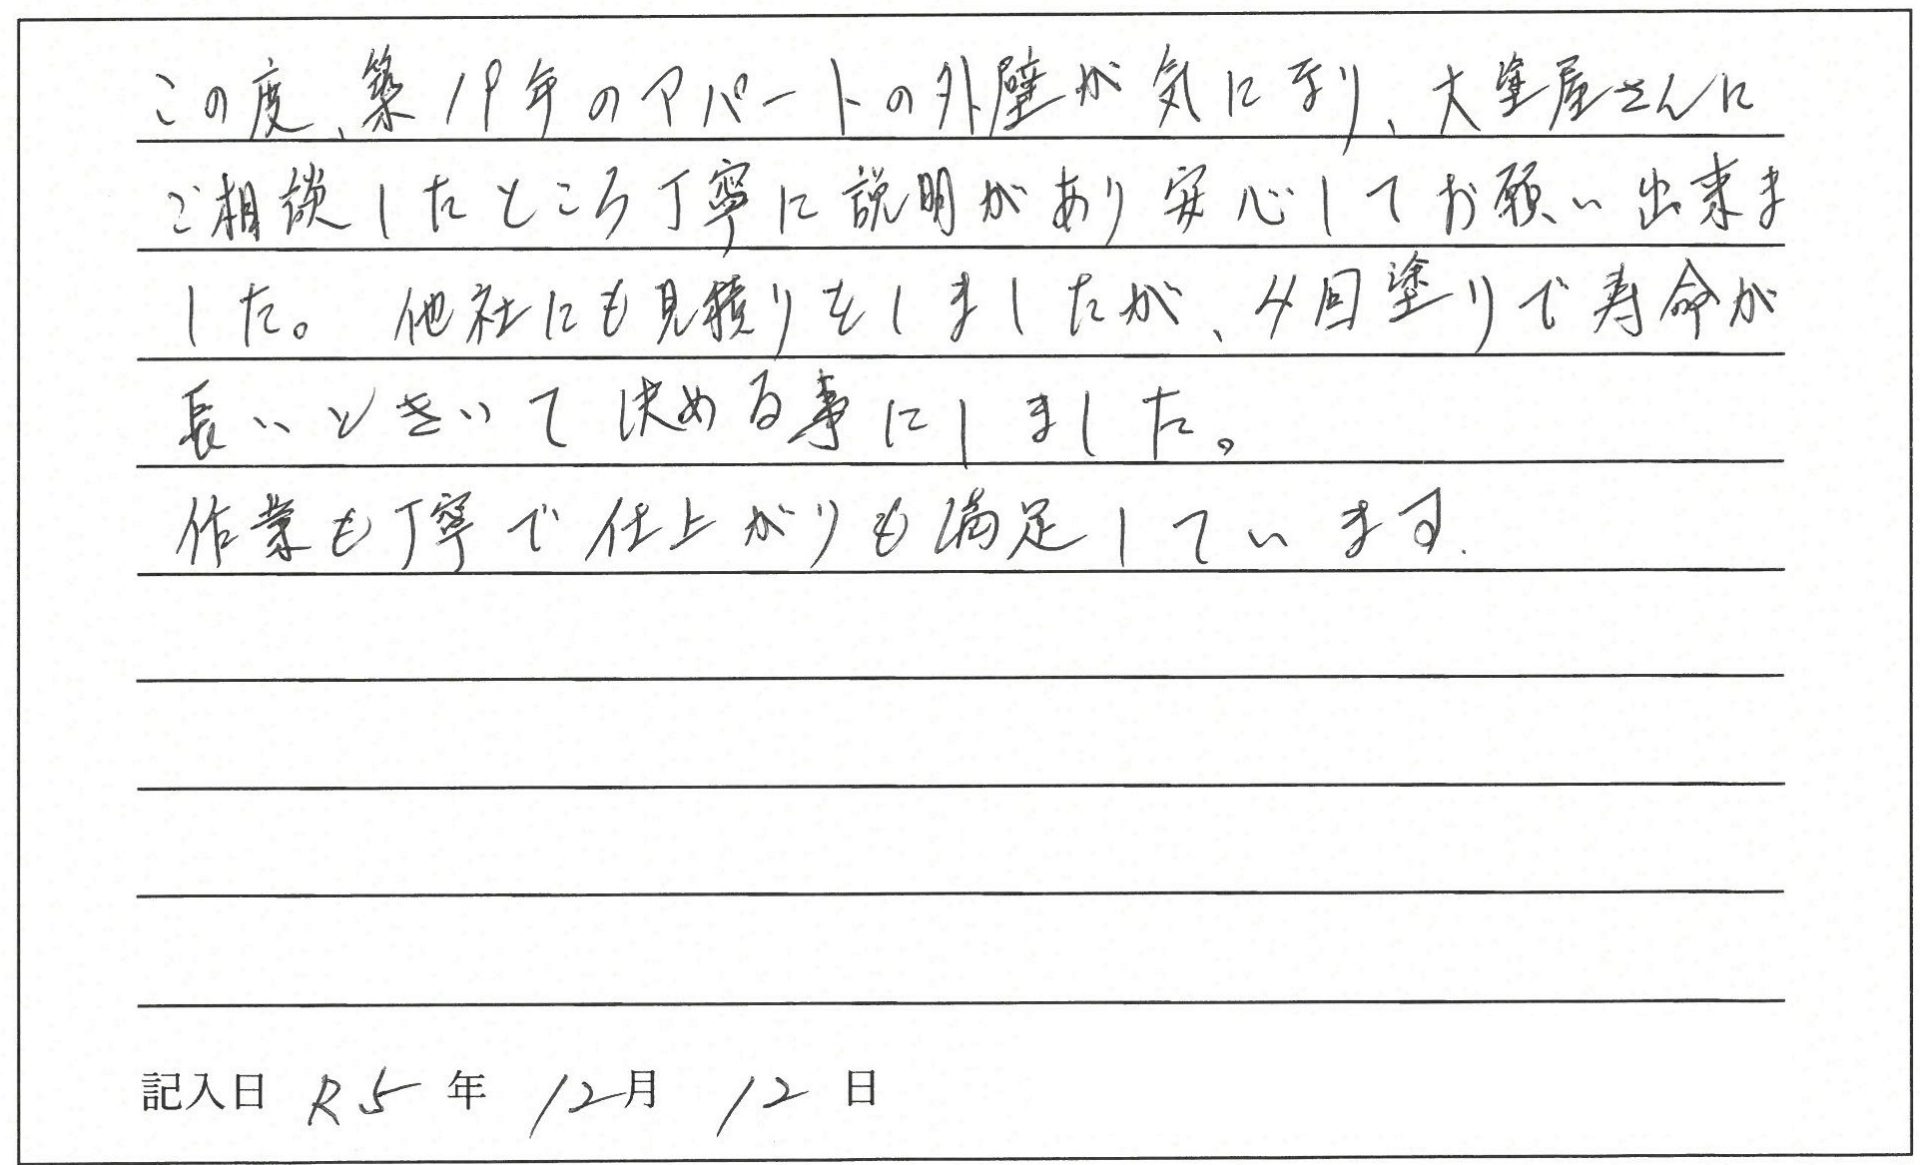 この度、築19年のアパートの外壁が気になり、大塗屋さんに
ご相談したところ丁寧に説明があり安心してお願い出来ま
した。 他社にも見積りをしましたが、4回塗りで寿命が
長いときいて決める事にしました。
作業も丁寧で仕上がりも満足しています.
記入日 R5 年 12月 12 日